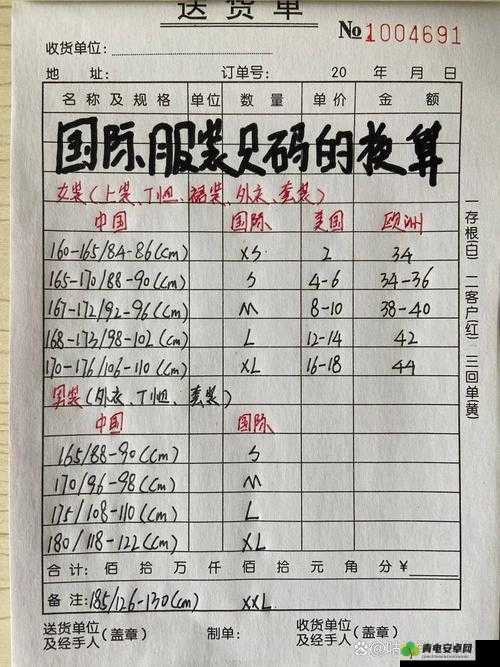 送货单
№1004691
收货单位：
地 址： 订单号： 20 年 月 日
名称及规格 单位 数量 单价 金额
国际服装尺码的换算
女装(上装、T恤、裙装、外衣、套装)
中国 国际 美国 欧洲
160-165/84-86(cm) XS 2 34
165-170/88-90(cm) S 4-6 34-36
167-172/92-96(cm) M 8-10 38-40
168-173/98-102(cm) L 12-14 42
170-176/106-110(cm) XL 16-18 44
男装(外衣、T恤、套装)
中国 国际
165/88-90(cm) S
170/96-98(cm) M
175/108-110(cm) L
180/118-122(cm) XL
合计： 佰 拾 万 仟 佰 拾 元 角 分 ¥
备注：185/126-130(cm) XXL
送货单位及经手人(盖章) 制单： 收货单位及经手人
一存根(白) 二客户(红) 三回单(黄)
青电安卓网